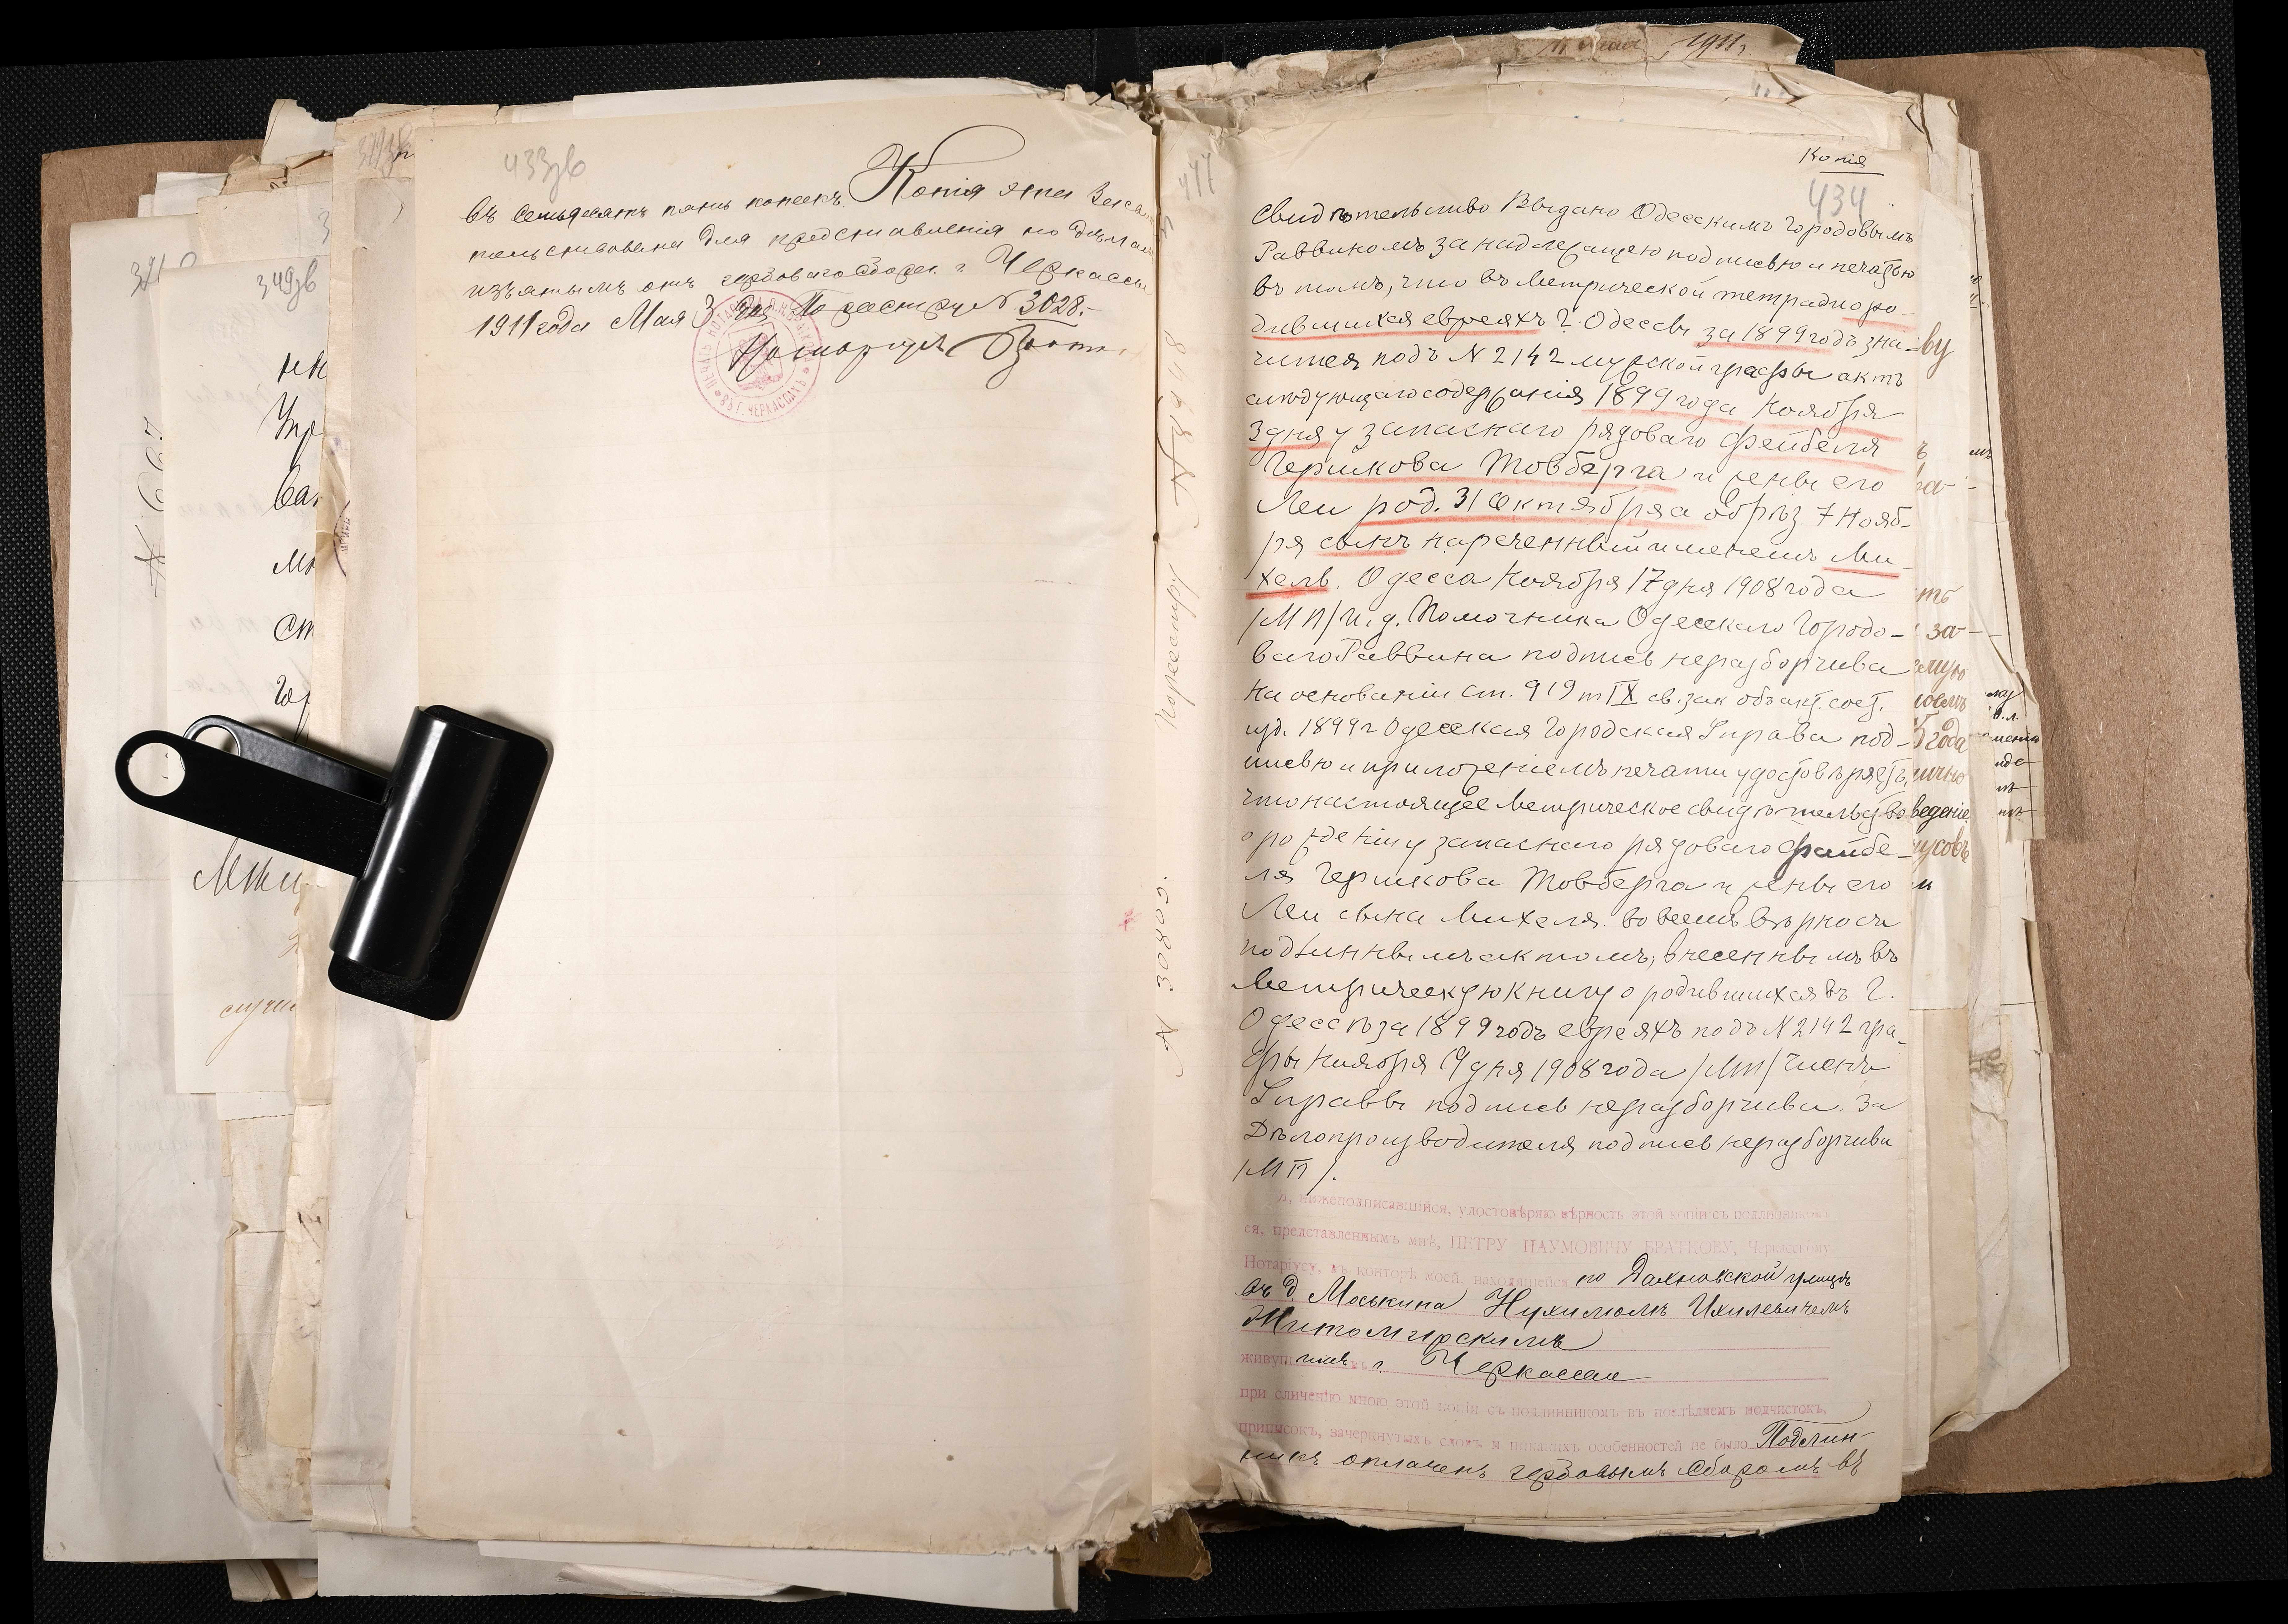 433зв
въ семьдесятъ пять копеекъ. Копія эта
тельствована для представленія по дѣламъ
изъятымъ отъ гербоваго сбора. г. Черкассы
1911 года Мая 3 дня По реестру N 3028.-
Нотаріусъ
ВЪ Г. ЧЕРКАССАХЪ
349зв
N 667
По реестру
N 3028
1911г.
Копія
434
Свидѣтельство Выдано Одесскимъ Городовымъ
Раввиномъ за надлежащею подписью и печатью
въ томъ, что въ Метрической тетради о ро-
дившихся евреяхъ г. Одессы за 1899 годъ зна-
чится подъ N 2142 мужской графы актъ
слѣдующаго содержанія 1899 года Ноября
3 дня у запаснаго рядоваго Фейбеля
Гершкова Товберга и жены его
Леи род. 31 октября обрѣз. 7 Нояб-
ря сынъ нареченный именемъ Ми-
хель. Одесса Ноября 17 дня 1908 года
/М П/ И. д. Помочника Одесскаго Городо-
ваго Раввина подпись неразборчива
На основаніи ст. 919 т IX св. зак объ акт. сост.
изд. 1899 г Одесская Городская Управа под-
писью и приложеніемъ печати удостовѣряетъ,
что настоящее Метрическое свидѣтельство
о рожденіи у запаснаго рядоваго Файбе-
ля Гершкова Товберга и жены его
Леи сына Михеля. во всемъ вѣрно съ
подлиннымъ актомъ, внесеннымъ въ
Метрическую книгу о родившихся въ г.
Одессѣ за 1899 годъ евреяхъ подъ N 2142 гра-
фы Ноября 19 дня 1908 года /МП/ Членъ
Управы подпись неразборчива. За
Дѣлопроизводителя подпись неразборчива
/М П/.
Я, нижеподписавшійся, удостовѣряю вѣрность этой копіи съ подлинникомъ
ея, представленнымъ мнѣ, ПЕТРУ НАУМОВИЧУ БРАТКОВУ, Черкасскому
Нотаріусу, въ конторѣ моей, находящейся по Дахновской улицѣ
въ д. Моськина Нухимомъ Ихилевичемъ
Житомирскимъ
живущимъ въ г. Черкассах
при сличеніи мною этой копіи съ подлинникомъ въ послѣднемъ подчистокъ,
приписокъ, зачеркнутыхъ словъ и никакихъ особенностей не было. Подлин-
никъ оплаченъ гербовымъ сборомъ въ